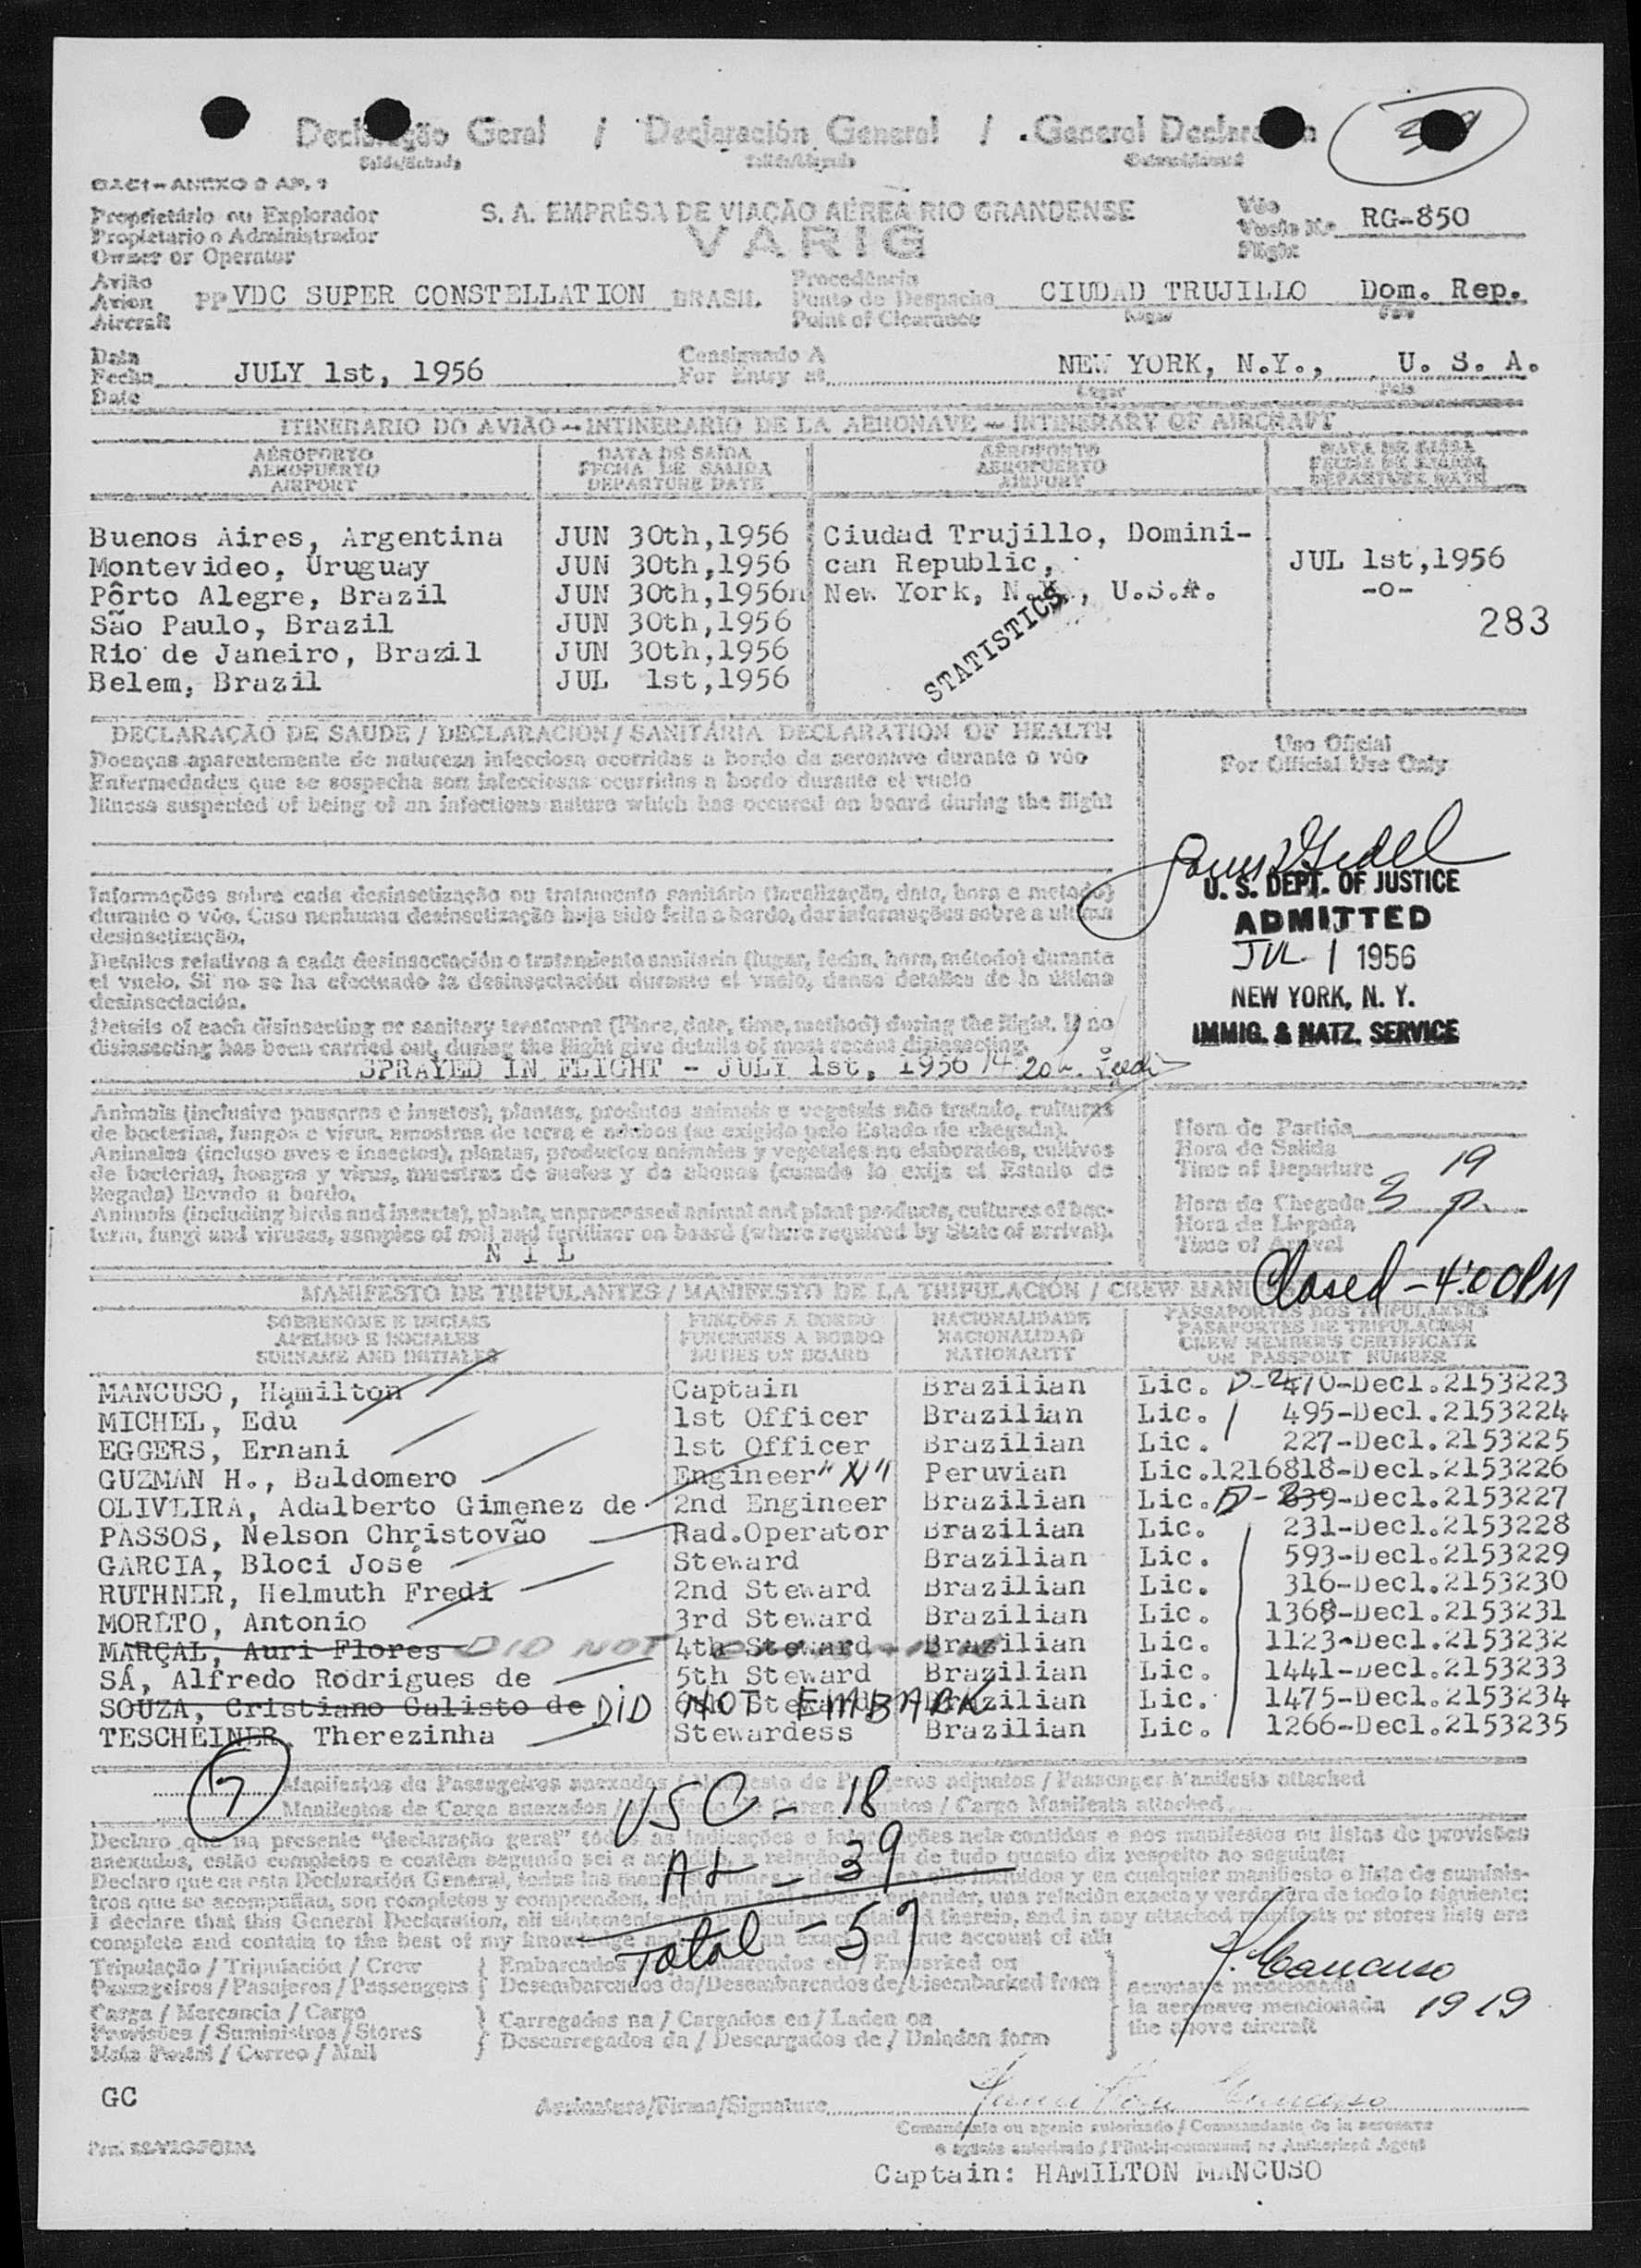 Declaração Geral / Declaración General / General Declaration
OACI - ANEXO 9 AP. 1
Proprietário ou Explorador
Propietario o Administrador
Owner or Operator
S. A. EMPRÊSA DE VIAÇÃO AÉREA RIO GRANDENSE
VARIG
Vôo
Vuelo No
Flight
RG-850
Avião
Avion
Aircraft
PP VDC SUPER CONSTELLATION BRASIL
Procedência
Punto de Despacho
Point of Clearance
CIUDAD TRUJILLO Dom. Rep.
Lugar
Data
Fecha
Date
JULY 1st, 1956
Consignado A
For Entry at
NEW YORK, N.Y., U. S. A.
Lugar País
ITINERARIO DO AVIÃO - INTINERARIO DE LA AERONAVE - INTINERARY OF AIRCRAFT
AÉROPORTO
AEROPUERTO
AIRPORT
DATA DE SAÍDA
FECHA DE SALIDA
DEPARTURE DATE
AÉROPORTO
AEROPUERTO
AIRPORT
DATA DE SAÍDA
FECHA DE SALIDA
DEPARTURE DATE
Buenos Aires, Argentina JUN 30th,1956 Ciudad Trujillo, Domini-
Montevideo, Uruguay JUN 30th,1956 can Republic, JUL 1st,1956
Pôrto Alegre, Brazil JUN 30th,1956n New York, N.Y., U.S.A. -o-
São Paulo, Brazil JUN 30th,1956 283
Rio de Janeiro, Brazil JUN 30th,1956
Belem, Brazil JUL 1st,1956
STATISTICS
DECLARAÇÃO DE SAUDE / DECLARACION / SANITÁRIA DECLARATION OF HEALTH
Doenças aparentemente de natureza infecciosa ocorridas a bordo da aeronave durante o vôo
Enfermedades que se sospecha son infecciosas ocurridas a bordo durante el vuelo
Illness suspected of being of an infectious nature which has occured on board during the flight
Uso Oficial
For Official Use Only
U. S. DEPT. OF JUSTICE
ADMITTED
JUL 1 1956
NEW YORK, N. Y.
IMMIG. & NATZ. SERVICE
Informações sobre cada desinsetização ou tratamento sanitário (localização, data, hora e metodo)
durante o vôo. Caso nenhuma desinsetização haja sido feita a bordo, dar informações sobre a ultima
desinsetização.
Detalles relativos a cada desinsectación o tratamiento sanitario (lugar, fecha, hora, método) durante
el vuelo. Si no se ha efectuado la desinsectación durante el vuelo, dense detalles de la última
desinsectación.
Details of each disinsecting or sanitary treatment (Place, date, time, method) during the flight. If no
disinsecting has been carried out, during the flight give details of most recent disinsecting.
SPRAYED IN FLIGHT - JULY 1st, 1956 14 20
Animais (inclusive passaros e insetos), plantas, produtos animais e vegetais não tratado, culturas
de bacterias, fungos e virus, amostras de terra e adubos (se exigido pelo Estado de chegada).
Animales (incluso aves e insectos), plantas, productos animales y vegetales no elaborados, cultivos
de bacterias, hongos y virus, muestras de suelos y de abonos (cuando lo exija el Estado de
llegada) llevado a bordo.
Animals (including birds and insects), plants, unprocessed animal and plant products, cultures of bac-
teria, fungi and viruses, samples of soil and fertilizer on board (where required by State of arrival).
N I L
Hora de Partida
Hora de Salida
Time of Departure 19
Hora de Chegada 3 P.
Hora de Llegada
Time of Arrival
Closed - 4:00 PM
MANIFESTO DE TRIPULANTES / MANIFESTO DE LA TRIPULACIÓN / CREW MANI
SOBRENOME E INICIAIS
APELIDO E INICIALES
SURNAME AND INITIALES
FUNÇÕES A BORDO
FUNCIONES A BORDO
DUTIES ON BOARD
NACIONALIDADE
NACIONALIDAD
NATIONALITY
PASSAPORTES DOS TRIPULANTES
PASAPORTES DE TRIPULACION
CREW MEMBER'S CERTIFICATE
OR PASSPORT NUMBER
MANCUSO, Hamilton Captain Brazilian Lic. D-2470-Decl.2153223
MICHEL, Edú 1st Officer Brazilian Lic. 495-Decl.2153224
EGGERS, Ernani 1st Officer Brazilian Lic. 227-Decl.2153225
GUZMÁN H., Baldomero Engineer "N" Peruvian Lic.1216818-Decl.2153226
OLIVEIRA, Adalberto Gimenez de 2nd Engineer Brazilian Lic. D-839-Decl.2153227
PASSOS, Nelson Christovão Rad.Operator Brazilian Lic. 231-Decl.2153228
GARCIA, Bloci José Steward Brazilian Lic. 593-Decl.2153229
RUTHNER, Helmuth Fredi 2nd Steward Brazilian Lic. 316-Decl.2153230
MORETO, Antonio 3rd Steward Brazilian Lic. 1368-Decl.2153231
MARÇAL, Auri Flores DID NOT 4th Steward Brazilian Lic. 1123-Decl.2153232
SÁ, Alfredo Rodrigues de 5th Steward Brazilian Lic. 1441-Decl.2153233
SOUZA, Cristiano Calisto de DID NOT EMBARK 6th Steward Brazilian Lic. 1475-Decl.2153234
TESCHEINER, Therezinha Stewardess Brazilian Lic. 1266-Decl.2153235
7
Manifestos de Passageiros anexados / Manifesto de Pasajeros adjuntos / Passenger Manifests attached
Manifestos de Carga anexados / Manifiesto de Carga adjuntos / Cargo Manifests attached
USC - 18
AL - 39
Total - 57
Declaro que na presente "declaração geral" todas as indicações e informações nela contidas e nos manifestos ou listas de provisões
anexados, estão completos e contêm segundo sei e acredito, a relação exata de tudo quanto diz respeito ao seguinte:
Declaro que en esta Declaración General, todas las incluidos y en cualquier manifiesto o lista de suminis-
tros que se acompañan, son completos y comprenden, según mi leal saber y entender, una relación exacta y verdadera de todo lo siguiente:
I declare that this General Declaration, all statements and particulars contained therein, and in any attached manifests or stores lists are
complete and contain to the best of my knowledge an exact and true account of all:
Tripulação / Tripulación / Crew
Passageiros / Pasajeros / Passengers
Embarcados en / Embarked on
Desembarcados da / Desembarcados de / Disembarked from
Carga / Mercancia / Cargo
Provisões / Suministros / Stores
Mala Postal / Correo / Mail
Carregados na / Cargados en / Laden on
Descarregados da / Descargados de / Unladen form
aeronave mencionada
la aeronave mencionada
the above aircraft
Mancuso
1919
GC
Assinatura/Firma/Signature Hamilton Mancuso
Comandante ou agente autorizado / Commandante de la aeronave
o agente autorizado / Pilot-in-command or Authorized Agent
Captain: HAMILTON MANCUSO